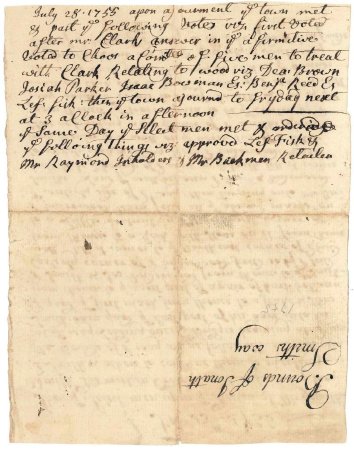 July 28: 1755 upon ajournment ye town met
& past ye following Votes viz first Voted
after mr Clark answer in ye afirmitive
Voted to Choos a Comtte of five men to treat
with Clark Relating to wood viz Dean Brown
Josiah Parker Isaac Bowman Es: Benj Reed Es
Lef: Fisk: then ye town ajournd to fryday next
at 3 aClock in afternoon
ye Same Day ye Select men met &
ye folloing things viz approvd Lef Fisk &
Mr Raymond Inholders & Mr Backman Retailer
Bounds of Jonath
Smiths way